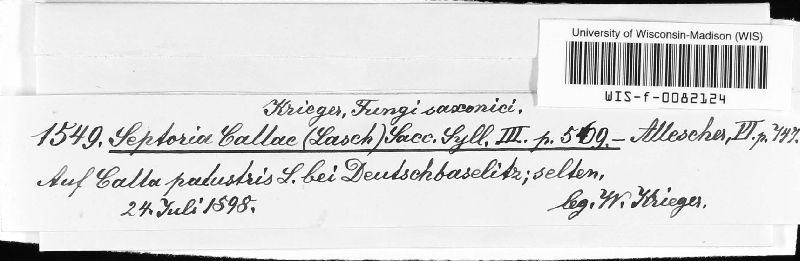 University of Wisconsin-Madison (WIS)
WIS-f-0082124
Krieger, Fungi saxonici.
1549. Septoria Callae (Lasch) Sacc. Syll. III. p. 569. - Allescher, VI. p. 747.
Auf Calla palustris L. bei Deutschbaselitz; selten.
24. Juli 1898. leg. W. Krieger.